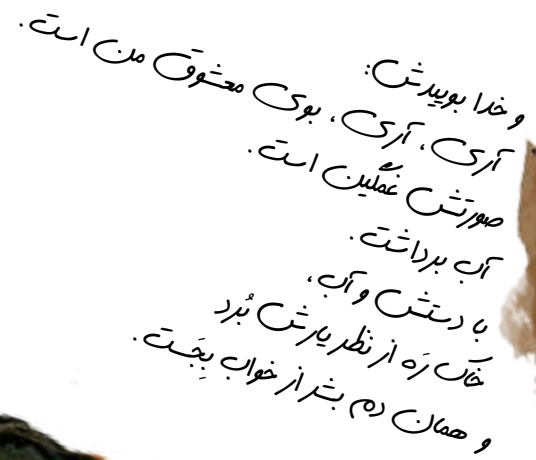 و خدا بوییدش:
آری، آری، بوی معشوق من است.
صورتش غمگین است.
آب برداشت.
با دستش و آب،
خاک رَه از نظر یارش بُرد
و همان دم بشر از خواب بِجَست.